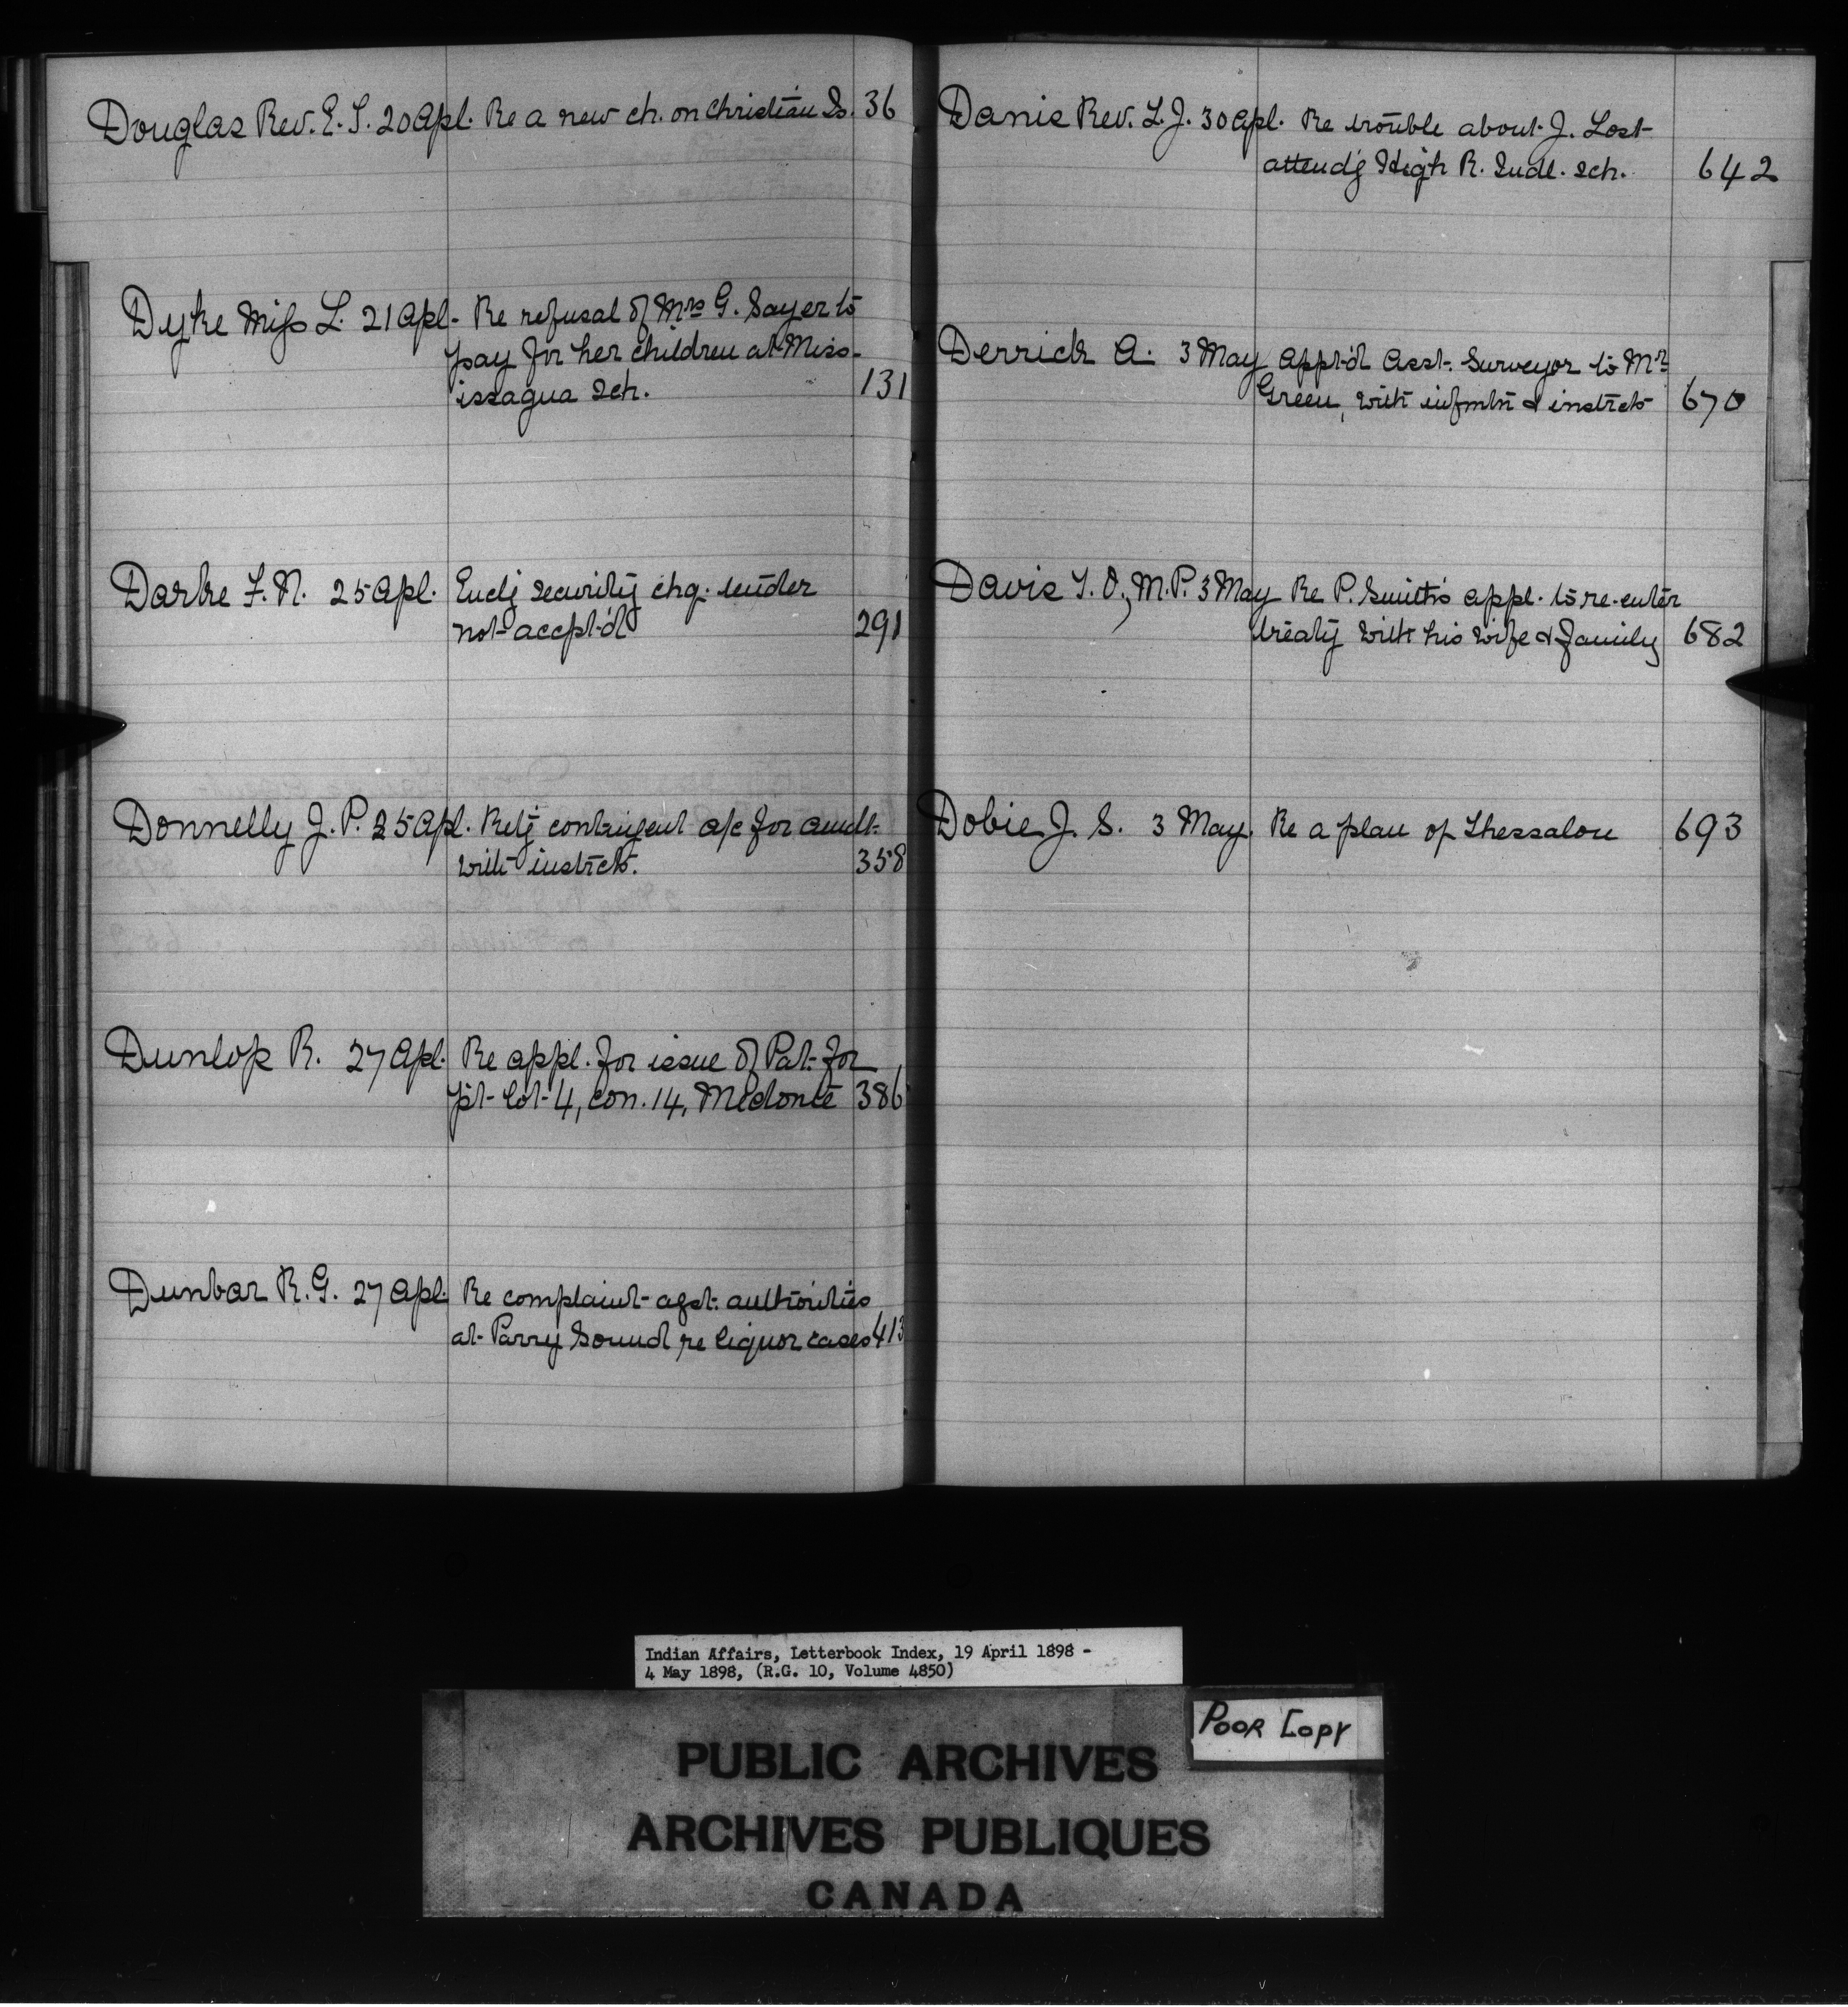 Douglas Rev. E. S. 20 Apl. Re a new ch. on Christian Is. 36
Dyke Miss L. 21 Apl. Re refusal of Mrs G. Sayer to
pay for her children at Miss-
issagua Sch. 131
Darke F. N. 25 Apl. Encl'g security chq. tender
not accpt'd 291
Donnelly J. P. 25 Apl. Ret'g contingent a/c for amdt.
with instrcts. 358
Dunlop R. 27 Apl. Re appl. for issue of Pat. for
pt. lot 4, con. 14, Medonte 386
Dunbar R. G. 27 Apl. Re complaint agst. authorities
at Parry Sound re liquor cases 413
Danis Rev. L. J. 30 Apl. Re trouble about J. Lost
attend'g High R. Indl. Sch. 642
Derrick A. 3 May Appt'd Asst. Surveyor to Mr
Green, with infmtn & instrcts 670
Davis T. O., M.P. 3 May Re P. Smith's appl. to re-enter
treaty with his wife & family 682
Dobie J. S. 3 May. Re a plan of Thessalon 693
Indian Affairs, Letterbook Index, 19 April 1898 -
4 May 1898, (R.G. 10, Volume 4850)
Poor Copy
PUBLIC ARCHIVES
ARCHIVES PUBLIQUES
CANADA